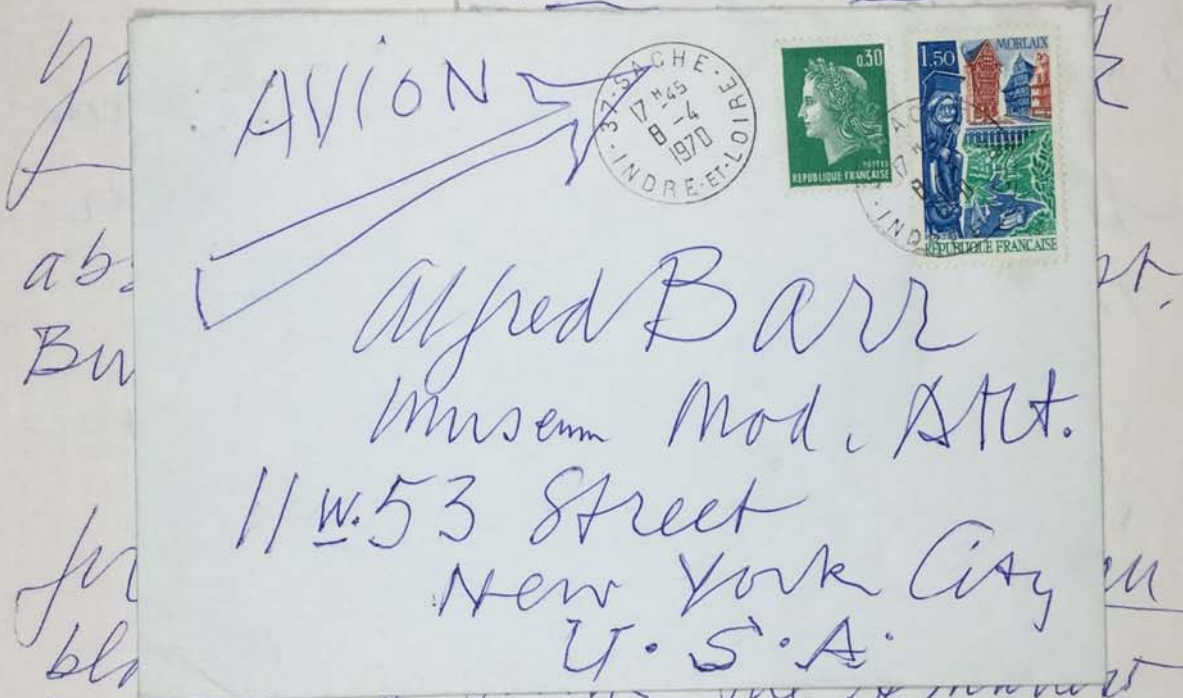 AVION
37-SACHE-INDRE-ET-LOIRE
17 H -45
8 -4
1970
0.30
POSTES
REPUBLIQUE FRANÇAISE
1.50
MORLAIX
REPUBLIQUE FRANÇAISE
Alfred Barr
Museum Mod. Art.
11 W. 53 Street
New York City
U.S.A.